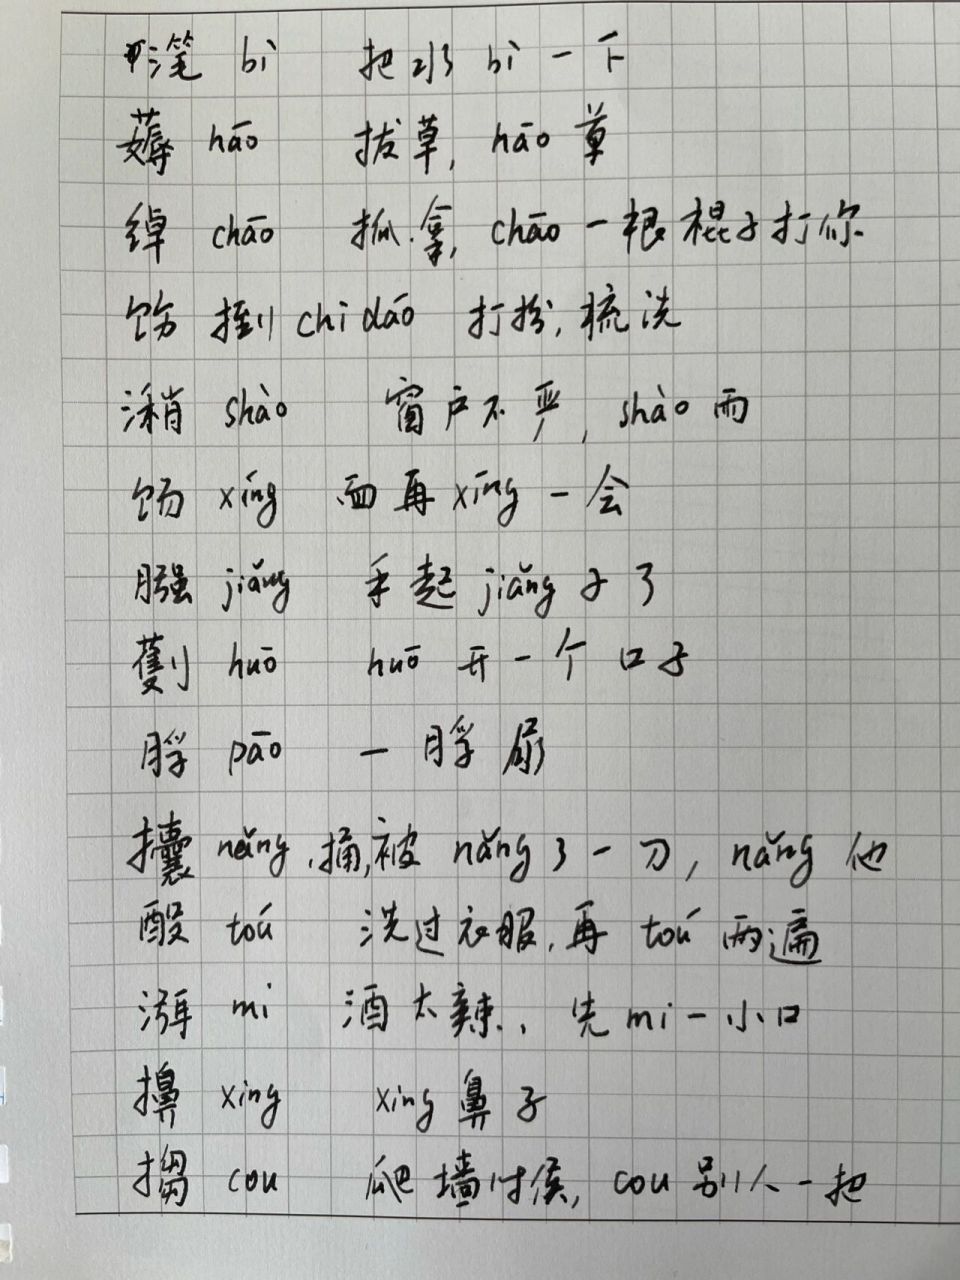 滗 bì 把水 bì 一下
薅 hāo 拔草, hāo 草
绰 chāo 抓.拿, chāo 一根棍子打你
饬捯 chi dáo 打扮, 梳洗
潲 shào 窗户不严, shào 雨
饧 xíng 面再 xíng 一会
膙 jiǎng 手起 jiǎng 子了
劐 huō huō 开一个口子
脬 pāo 一脬尿
攮 nǎng, 捅, 被 nǎng 了一刀, nǎng 他
酘 toú 洗过衣服, 再 toú 两遍
mi 酒太辣, 先 mi 一小口
擤 xing xing 鼻子
搊 cou 爬墙时候, cou 别人一把